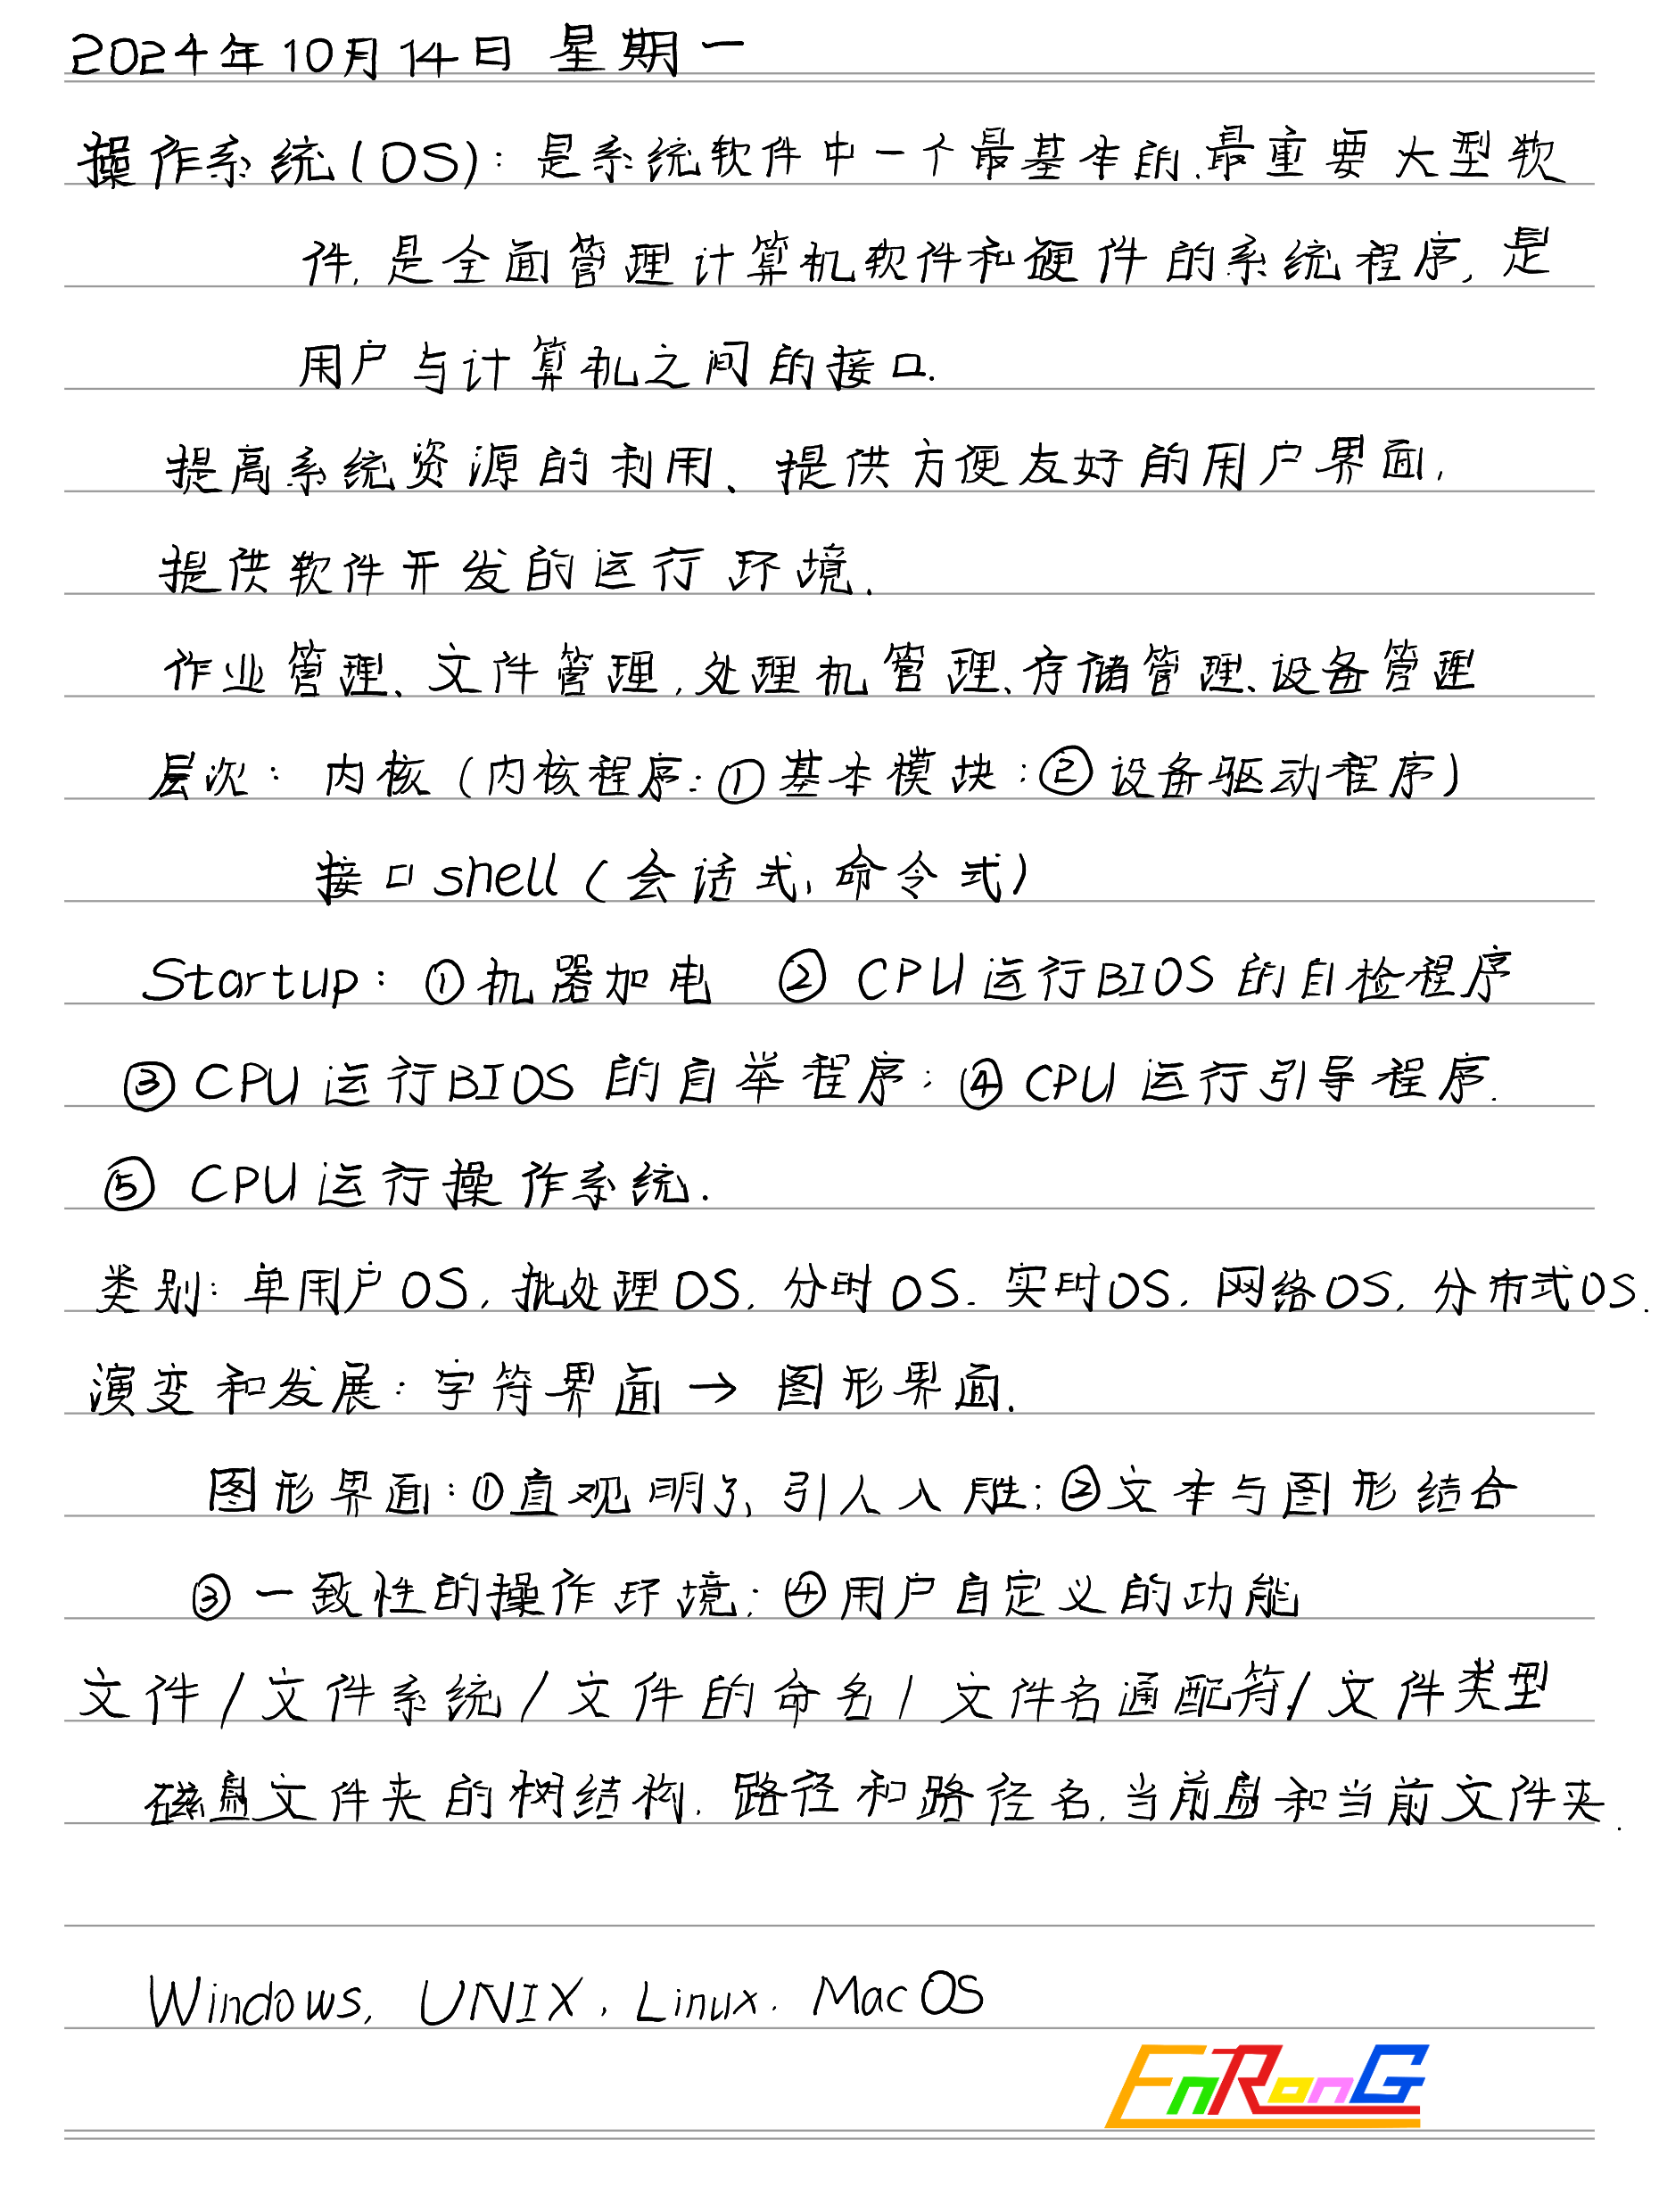 2024年10月14日 星期一
操作系统(OS):是系统软件中一个最基本的.最重要大型软
件,是全面管理计算机软件和硬件的系统程序,是
用户与计算机之间的接口.
提高系统资源的利用、提供方便友好的用户界面,
提供软件开发的运行环境.
作业管理、文件管理,处理机管理、存储管理、设备管理
层次: 内核(内核程序:①基本模块;②设备驱动程序)
接口shell(会话式,命令式)
Startup: ①机器加电 ②CPU运行BIOS的自检程序
③CPU运行BIOS的自举程序;④CPU运行引导程序.
⑤CPU运行操作系统.
类别:单用户OS,批处理OS,分时OS.实时OS,网络OS,分布式OS.
演变和发展:字符界面→图形界面.
图形界面:①直观明了,引人入胜;②文本与图形结合
③一致性的操作环境;④用户自定义的功能
文件/文件系统/文件的命名/文件名通配符/文件类型
磁盘文件夹的树结构.路径和路径名,当前盘和当前文件夹.
Windows, UNIX, Linux. MacOS
EnRonG